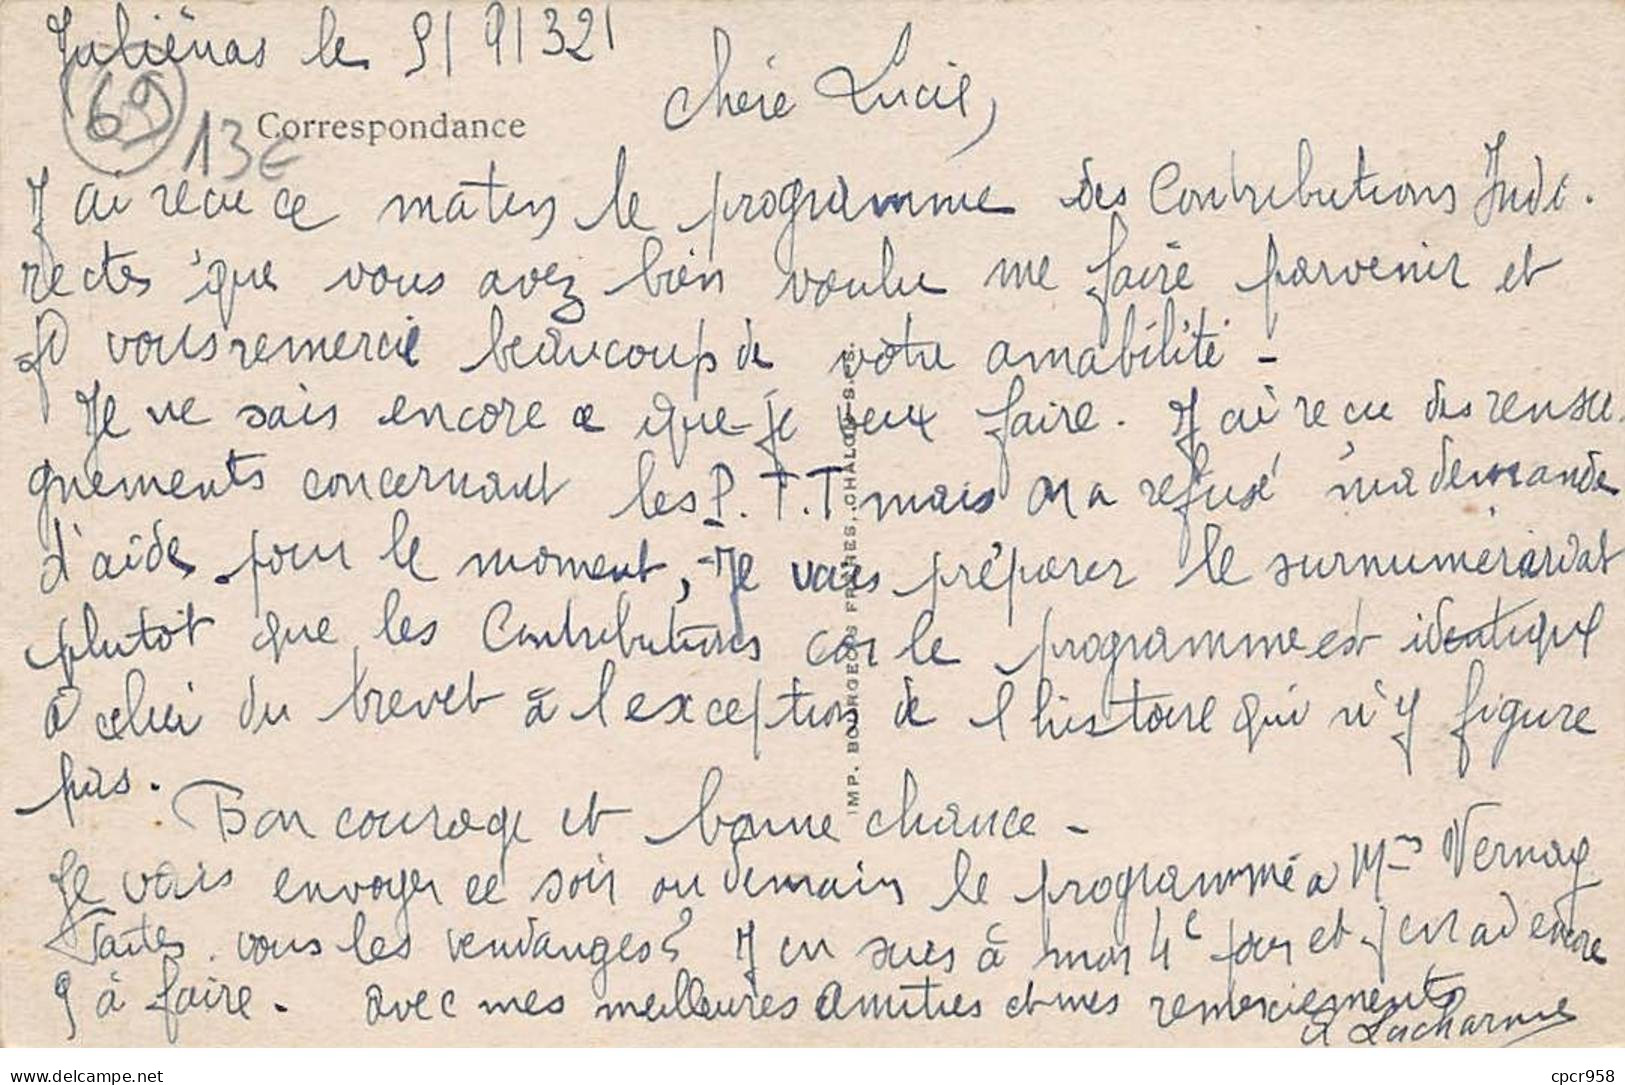 Juliénas le 9/9/32
69
13€
Correspondance
Chère Lucie,
J'ai reçu ce matin le programme des Contributions Indi.
rectes que vous avez bien voulu me faire parvenir et
vous remercie beaucoup de votre amabilité -
Je ne sais encore ce que je veux faire. J'ai reçu des rensei.
gnements concernant les P.T.T mais on a refusé ma demande
d'aide pour le moment, Je vais préparer le surnumérariat
plutôt que les Contributions car le programme est identique
à celui du brevet à l'exception de l'histoire qui n'y figure
pas.
Bon courage et bonne chance -
Je vais envoyer ce soir ou demain le programme à Vernay
Faites vous les vendanges? J'en suis à mon 4e jour et j'en ai encore
9 à faire - avec mes meilleures amitiés et mes remerciements
A Lacharme
IMP. BOURGEOIS FRÈRES, CHALON-S-S.
delcampe.net
cpcr958